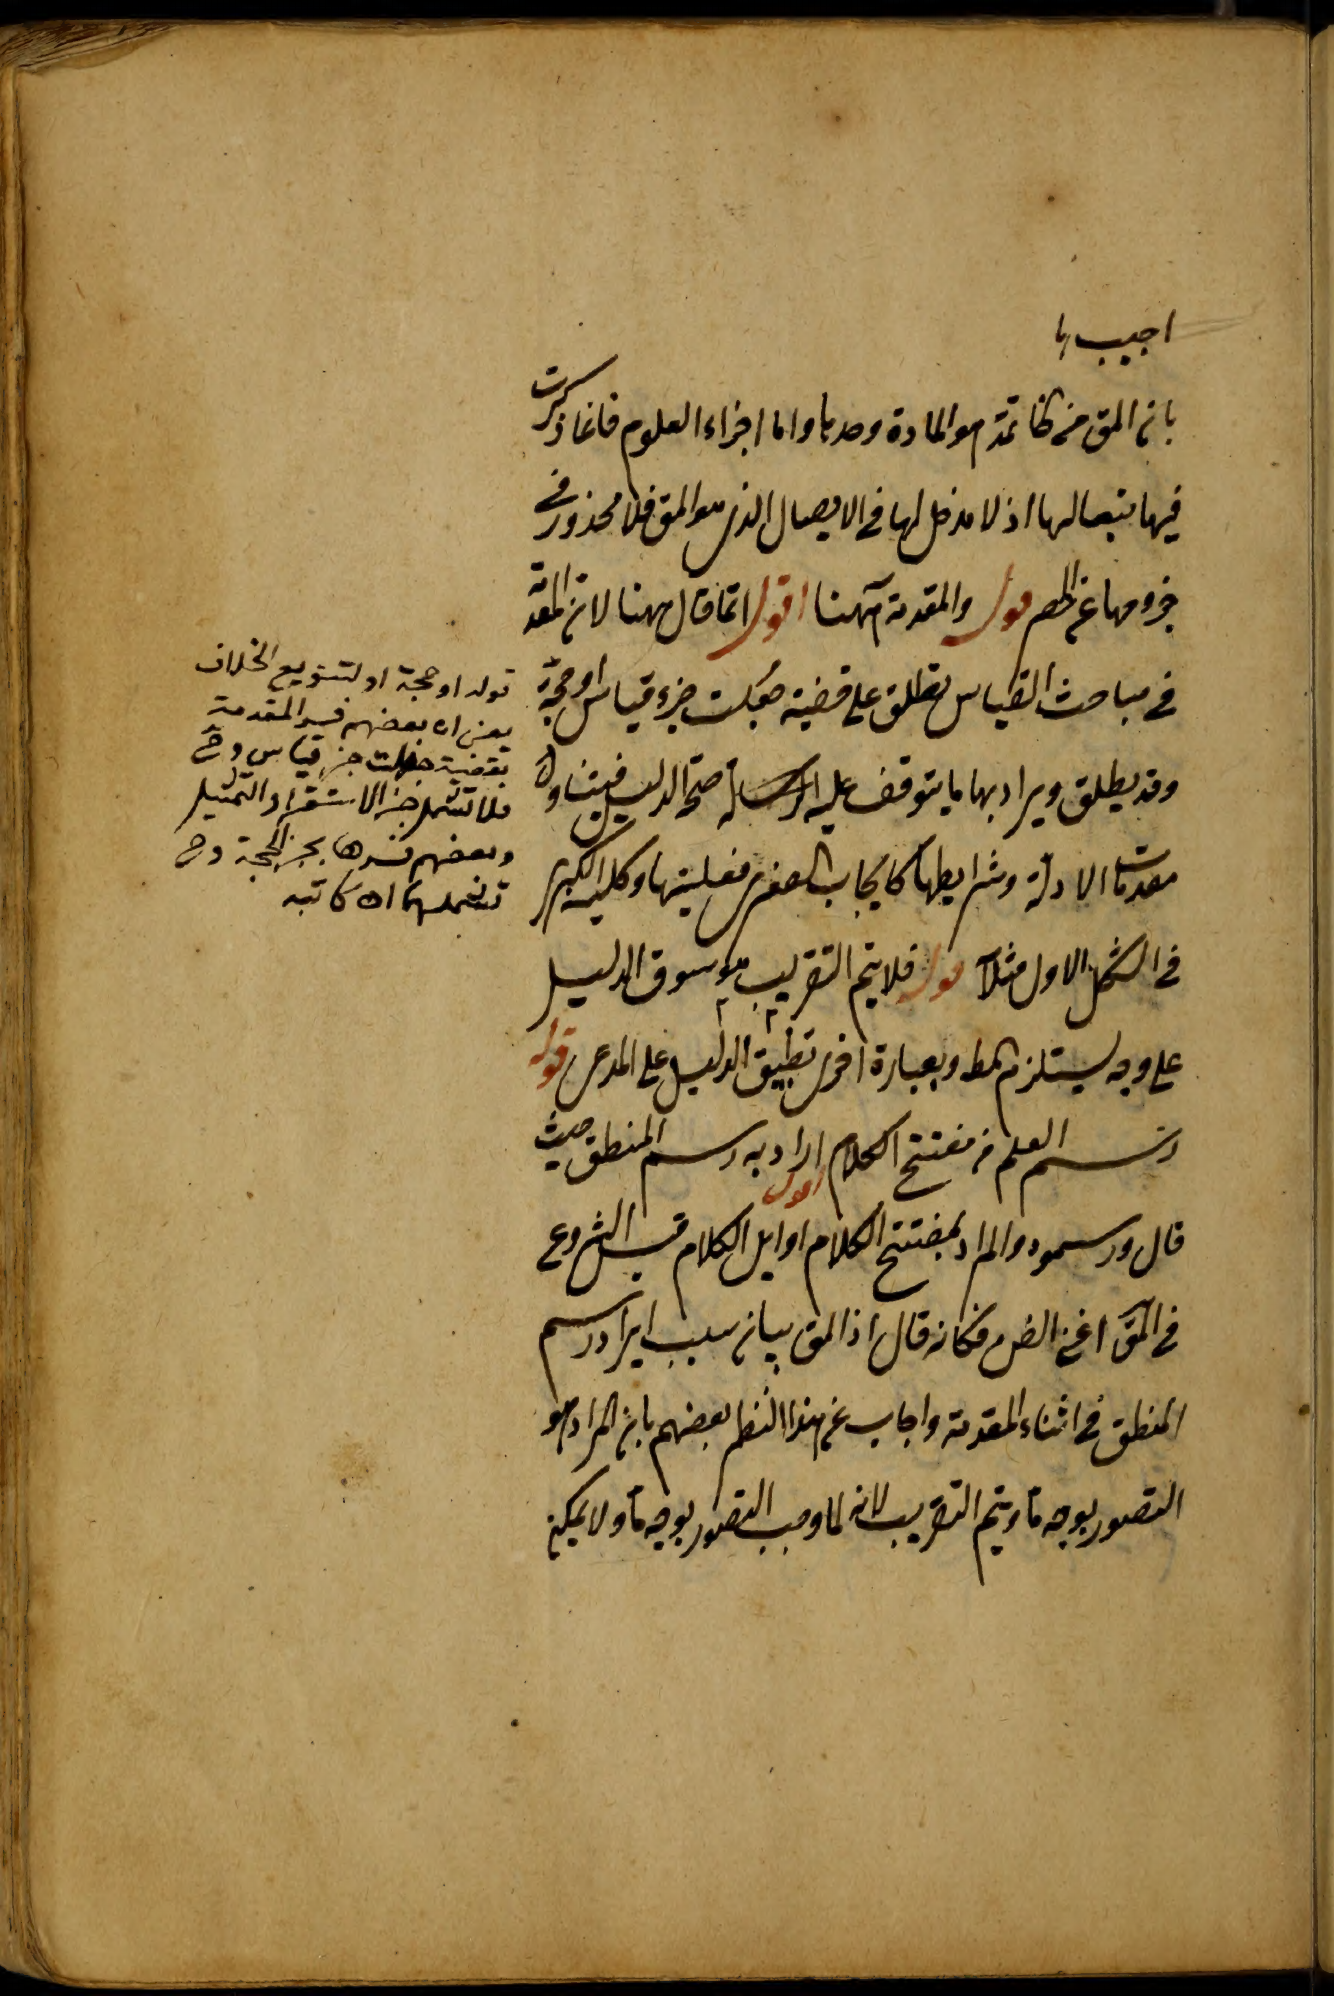 اجيب با
بان المق من الخاتمة هو المادة وحدها واما اجزاء العلوم فانما ذكرت
فيها تبعا لها اذ لا مدخل لها فى الايصال الذى هو المق فلا محذور فى
خروجها عن الحصر قوله والمقدمة ههنا اقول انما قال ههنا لان المقدمة
فى مباحث القياس تطلق على قضية جعلت جزء قياس او حجة
وقد يطلق ويراد بها ما يتوقف عليه صحة الدليل فيتناول
مقدمات الادلة وشرايطها كايجاب الصغرى وفعليتها وكلية الكبرى
فى الشكل الاول مثلا قوله فلا يتم التقريب هو سوق الدليل
على وجه يستلزم المط وبعبارة اخرى تطبيق الدليل على المدعى قوله
رسم العلم فى مفتتح الكلام اقول اراد به رسم المنطق حيث
قال ورسموه والمراد بمفتتح الكلام اوايل الكلام قبل الشروع
فى المق اعنى الفن فكانه قال اذ المق بيان سبب ايراد رسم
المنطق فى اثناء المقدمة واجاب عن هذا النظر بعضهم بان المراد هو
التصور بوجه ما ويتم التقريب لانه لما وجب التصور بوجه ما ولا يمكن
قوله او حجة او لتنويع الخلاف
يعنى ان بعضهم فسر المقدمة
بقضية جعلت جزء قياس وح
فلا تشمل جزء الاستقراء والتمثيل
وبعضهم فسرها بجزء الحجة وح
تشملهما اه كاتبه